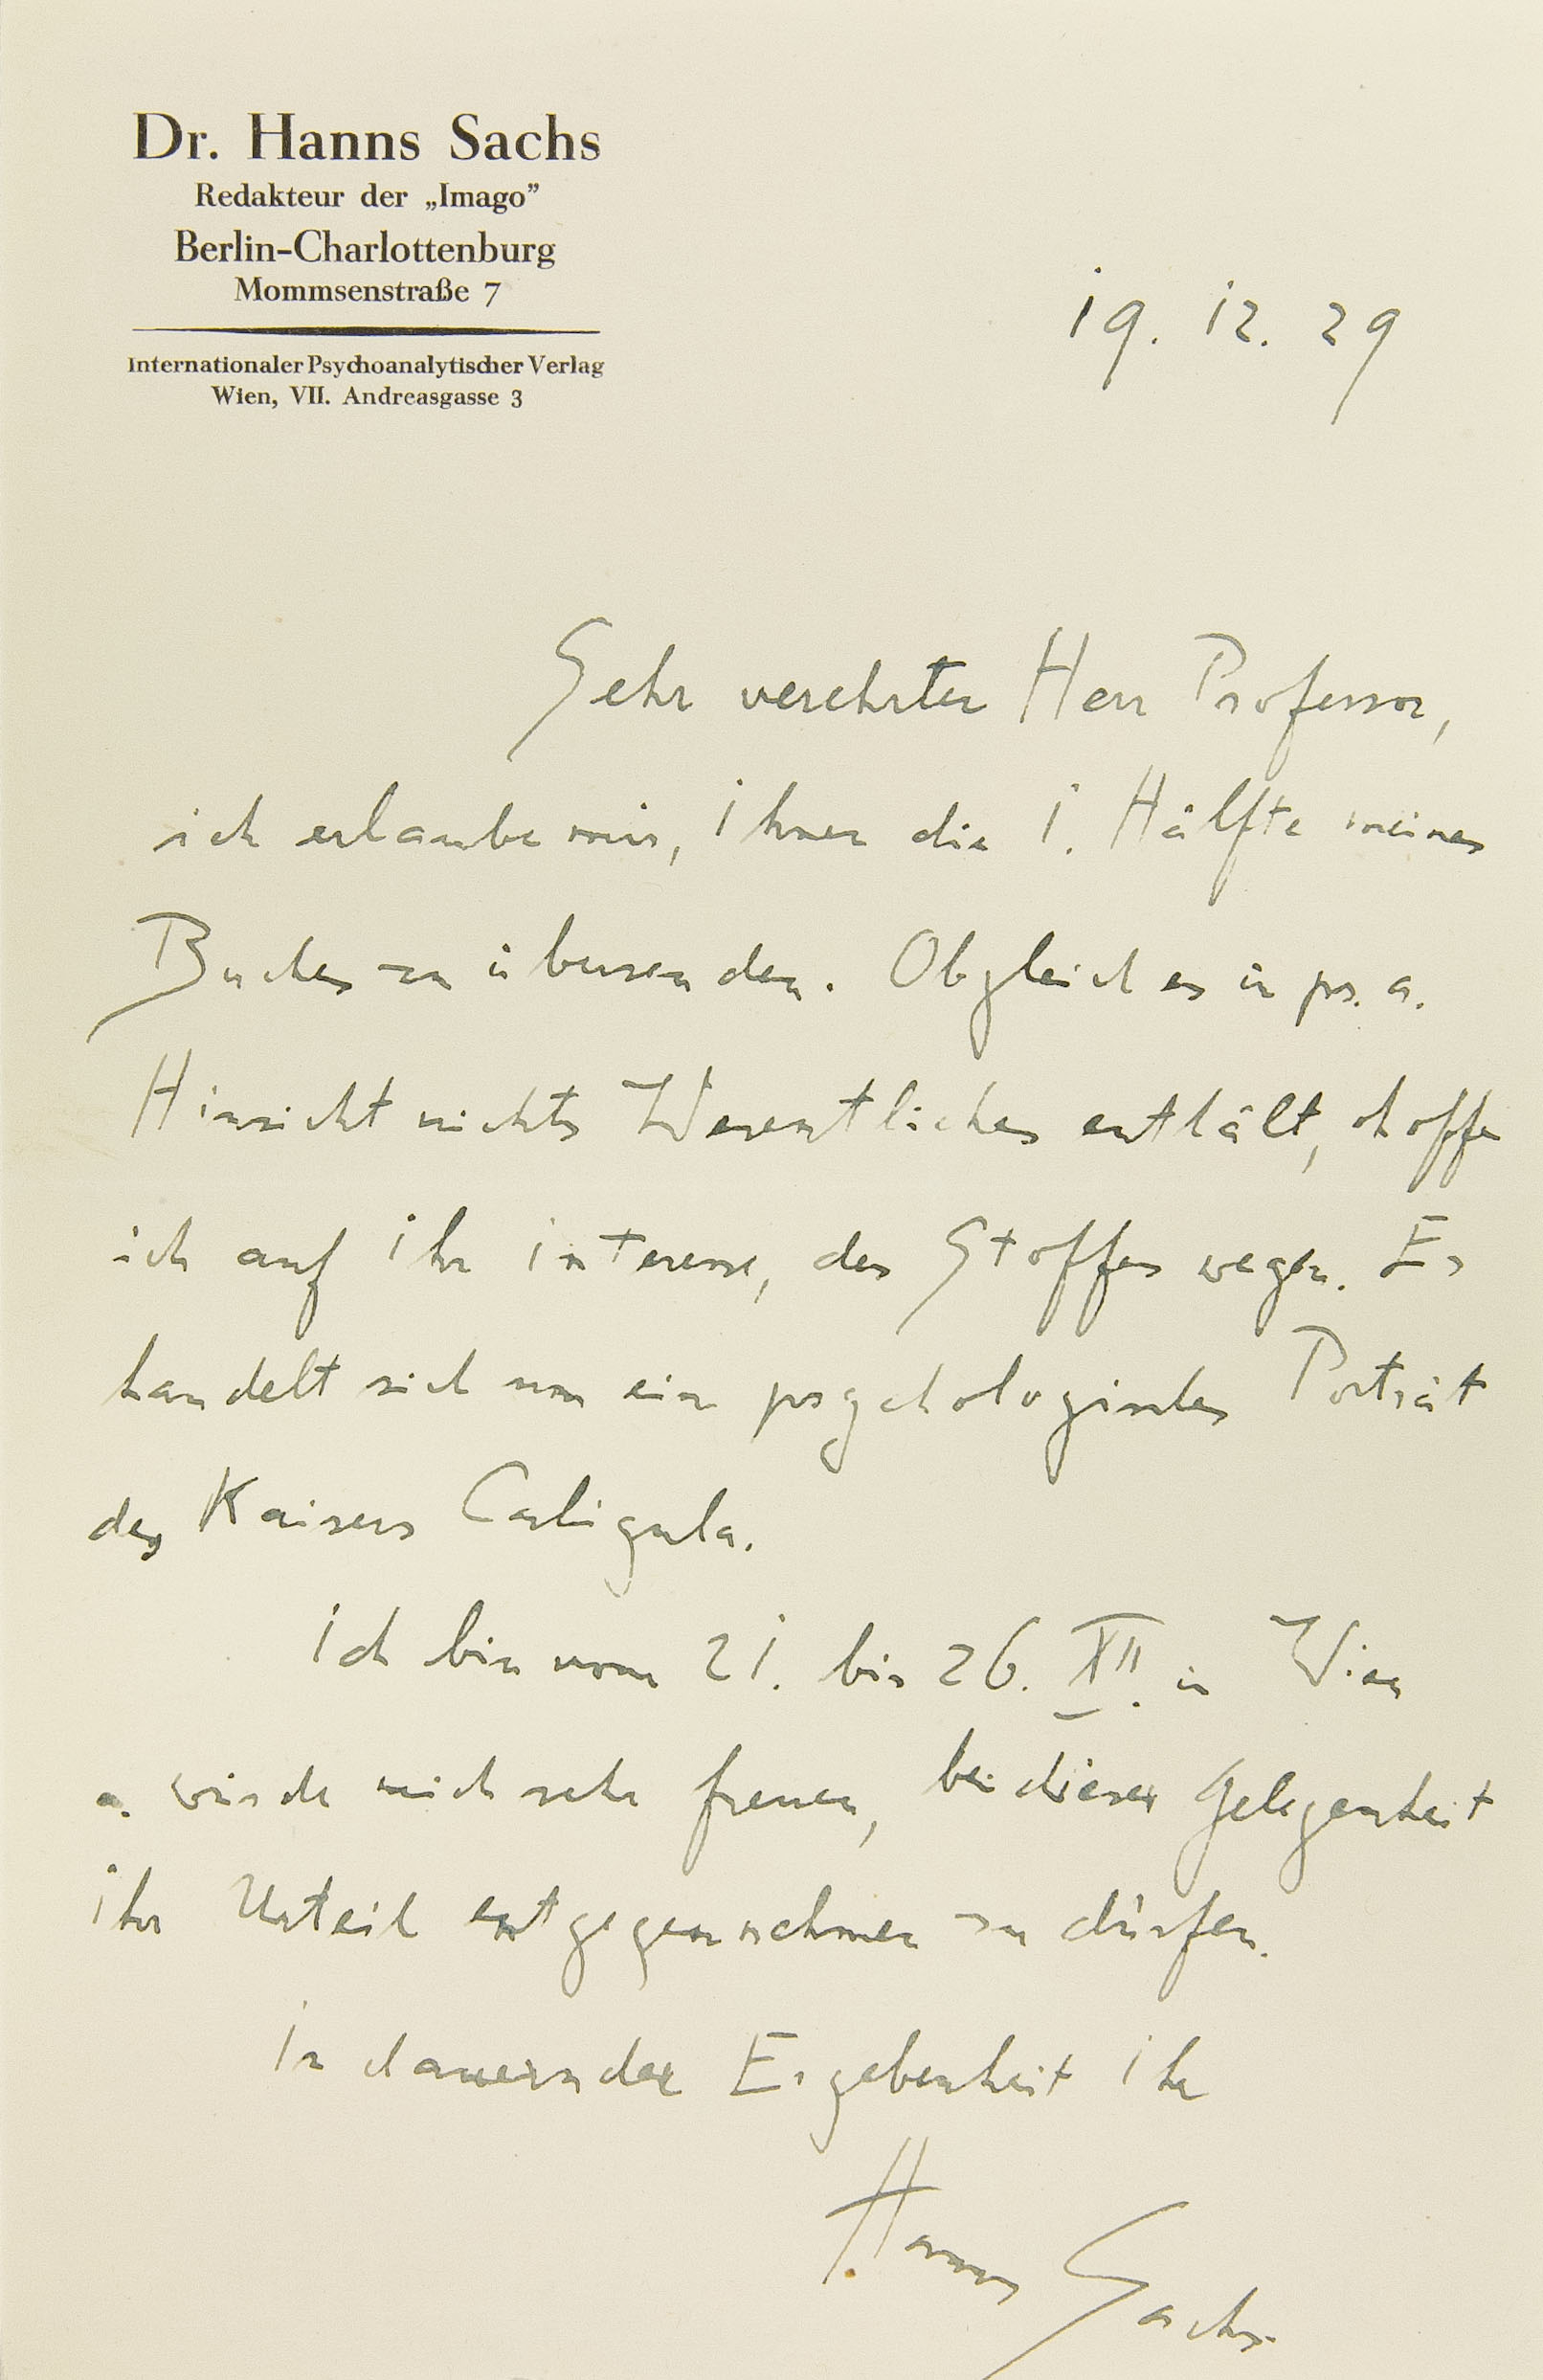 Dr. Hanns Sachs
Redakteur der „Imago”
Berlin-Charlottenburg
Mommsenstraße 7
Internationaler Psychoanalytischer Verlag
Wien, VII. Andreasgasse 3
19. 12. 29
Sehr verehrter Herr Professor,
ich erlaube mir, Ihnen die 1. Hälfte meines
Buches zu übersenden. Obgleich es in ps. a.
Hinsicht nichts Wesentliches enthält, hoffe
ich auf Ihr Interesse, des Stoffes wegen. Es
handelt sich um ein psychologisches Porträt
des Kaisers Caligula.
Ich bin vom 21. bis 26. XII. in Wien
u. würde mich sehr freuen, bei dieser Gelegenheit
Ihr Urteil entgegennehmen zu dürfen.
In dauernder Ergebenheit Ihr
Hanns Sachs